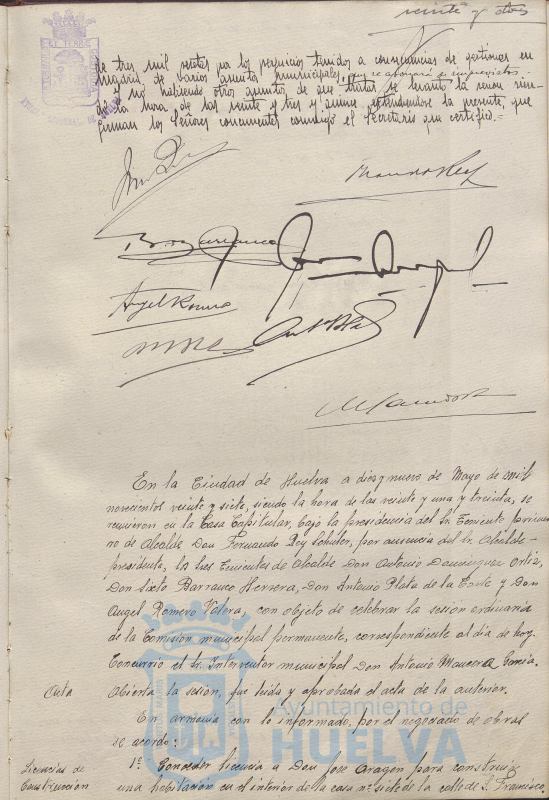 veinte y dos
de tres mil pesetas por los perjuicios tenidos a consecuencias de gestiones en
Madrid de varios asuntos municipales, que se abonará de imprevistos
Y no habiendo otros asuntos de que tratar se levantó la sesión sien-
do la hora de las veinte y tres y quince, extendiendose la presente, que
firman los Señores concurrentes conmigo el Secretario que certifico.=
Angel Romero
En la Ciudad de Huelva a diez y nueve de Mayo de mil
novecientos veinte y siete, siendo la hora de las veinte y una y treinta, se
reunieron en la Casa Capitular, bajo la presidencia del Sr. Teniente prime-
ro de Alcalde Don Fernando Rey Schüler, por ausencia del Sr. Alcalde-
presidente, los Sres Tenientes de Alcalde Don Antonio Dominguez Ortiz,
Don Sixto Barranco Herrera, Don Antonio Plata de la Corte y Don
Angel Romero Valera, con objeto de celebrar la sesión ordinaria
de la Comisión municipal permanente, correspondiente al día de hoy.
Concurrió el Sr. Interventor municipal Don Antonio Mancera Garcia.
Acta Abierta la sesión, fue leida y aprobada el acta de la anterior.
En armonia con lo informado, por el negociado de obras
se acordó:
Licencias de 1º Conceder licencia a Don José Aragón para construir
Construcción una habitación en el interior de la casa nº siete de la calle de S. Francisco.
Ayuntamiento de
HUELVA